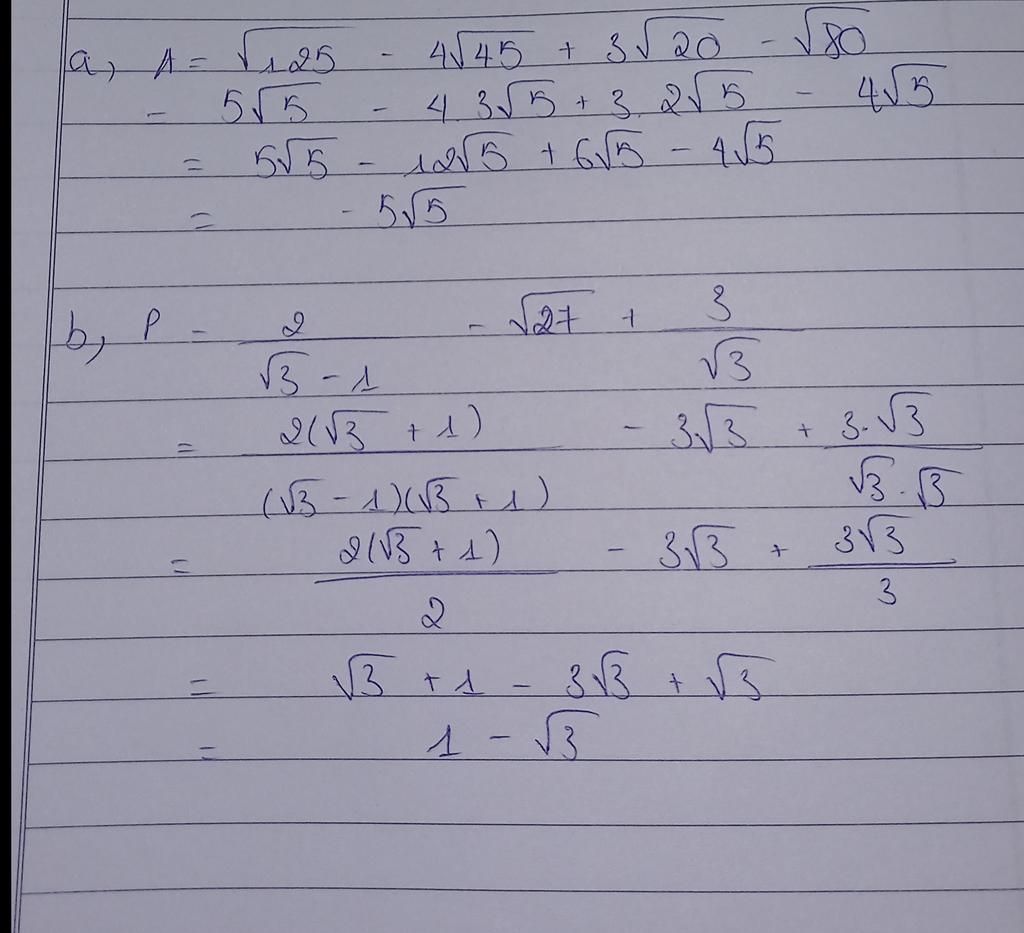 a, A = √125 - 4√45 + 3√20 - √80
= 5√5 - 4 3√5 + 3. 2√5 - 4√5
= 5√5 - 12√5 + 6√5 - 4√5
= - 5√5
b, P = 2/(√3 - 1) - √27 + 3/√3
= 2(√3 + 1)/((√3 - 1)(√3 + 1)) - 3√3 + 3.√3/(√3.√3)
= 2(√3 + 1)/2 - 3√3 + 3√3/3
= √3 + 1 - 3√3 + √3
= 1 - √3